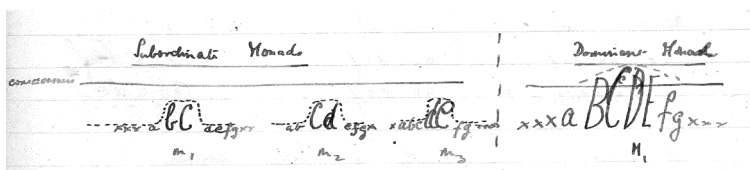 Subordinate Monads Dominant Monad
consciousness
xxx a bC defgxx ab Cd efgx xabc dC fg xxx xxxa BCDE fg xxx
m1 m2 m3 M1